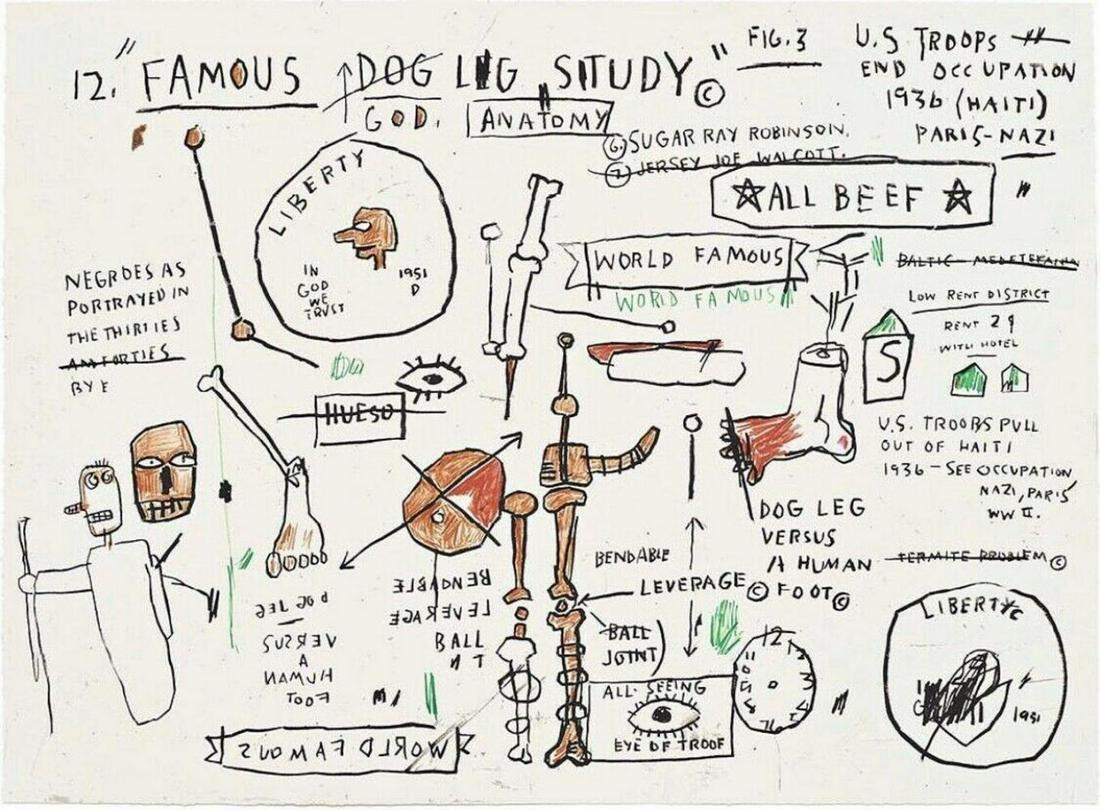 12. "FAMOUS DOG LEG STUDY" ©
GOD. ANATOMY
FIG. 3
U.S TROOPS
END OCCUPATION
1936 (HAITI)
PARIS-NAZI
6. SUGAR RAY ROBINSON.
7. JERSEY JOE WALCOTT.
☆ALL BEEF☆
LIBERTY
IN
GOD
WE
TRUST
1951
D
WORLD FAMOUS
WORLD FAMOUS
BALTIC-
LOW RENT DISTRICT
RENT 2
WITH HOTEL
S
NEGROES AS
PORTRAYED IN
THE THIRTIES
AN FORTIES
BY E
HUESO
U.S. TROOBS PULL
OUT OF HAITI
1936 - SEE OCCUPATION
NAZI, PARIS
WW II.
DOG LEG
VERSUS
A HUMAN
FOOT©
TERMITE PROBLEM©
BENDABLE
LEVERAGE©
BALL
JOINT
BENDABLE
LEVERAGE
BALL
N T
DOG LEG
VERSUS
A
HUMAN
FOOT
ALL-SEEING
EYE OF TROOF
12
LIBERTY
1951
WORLD FAMOUS